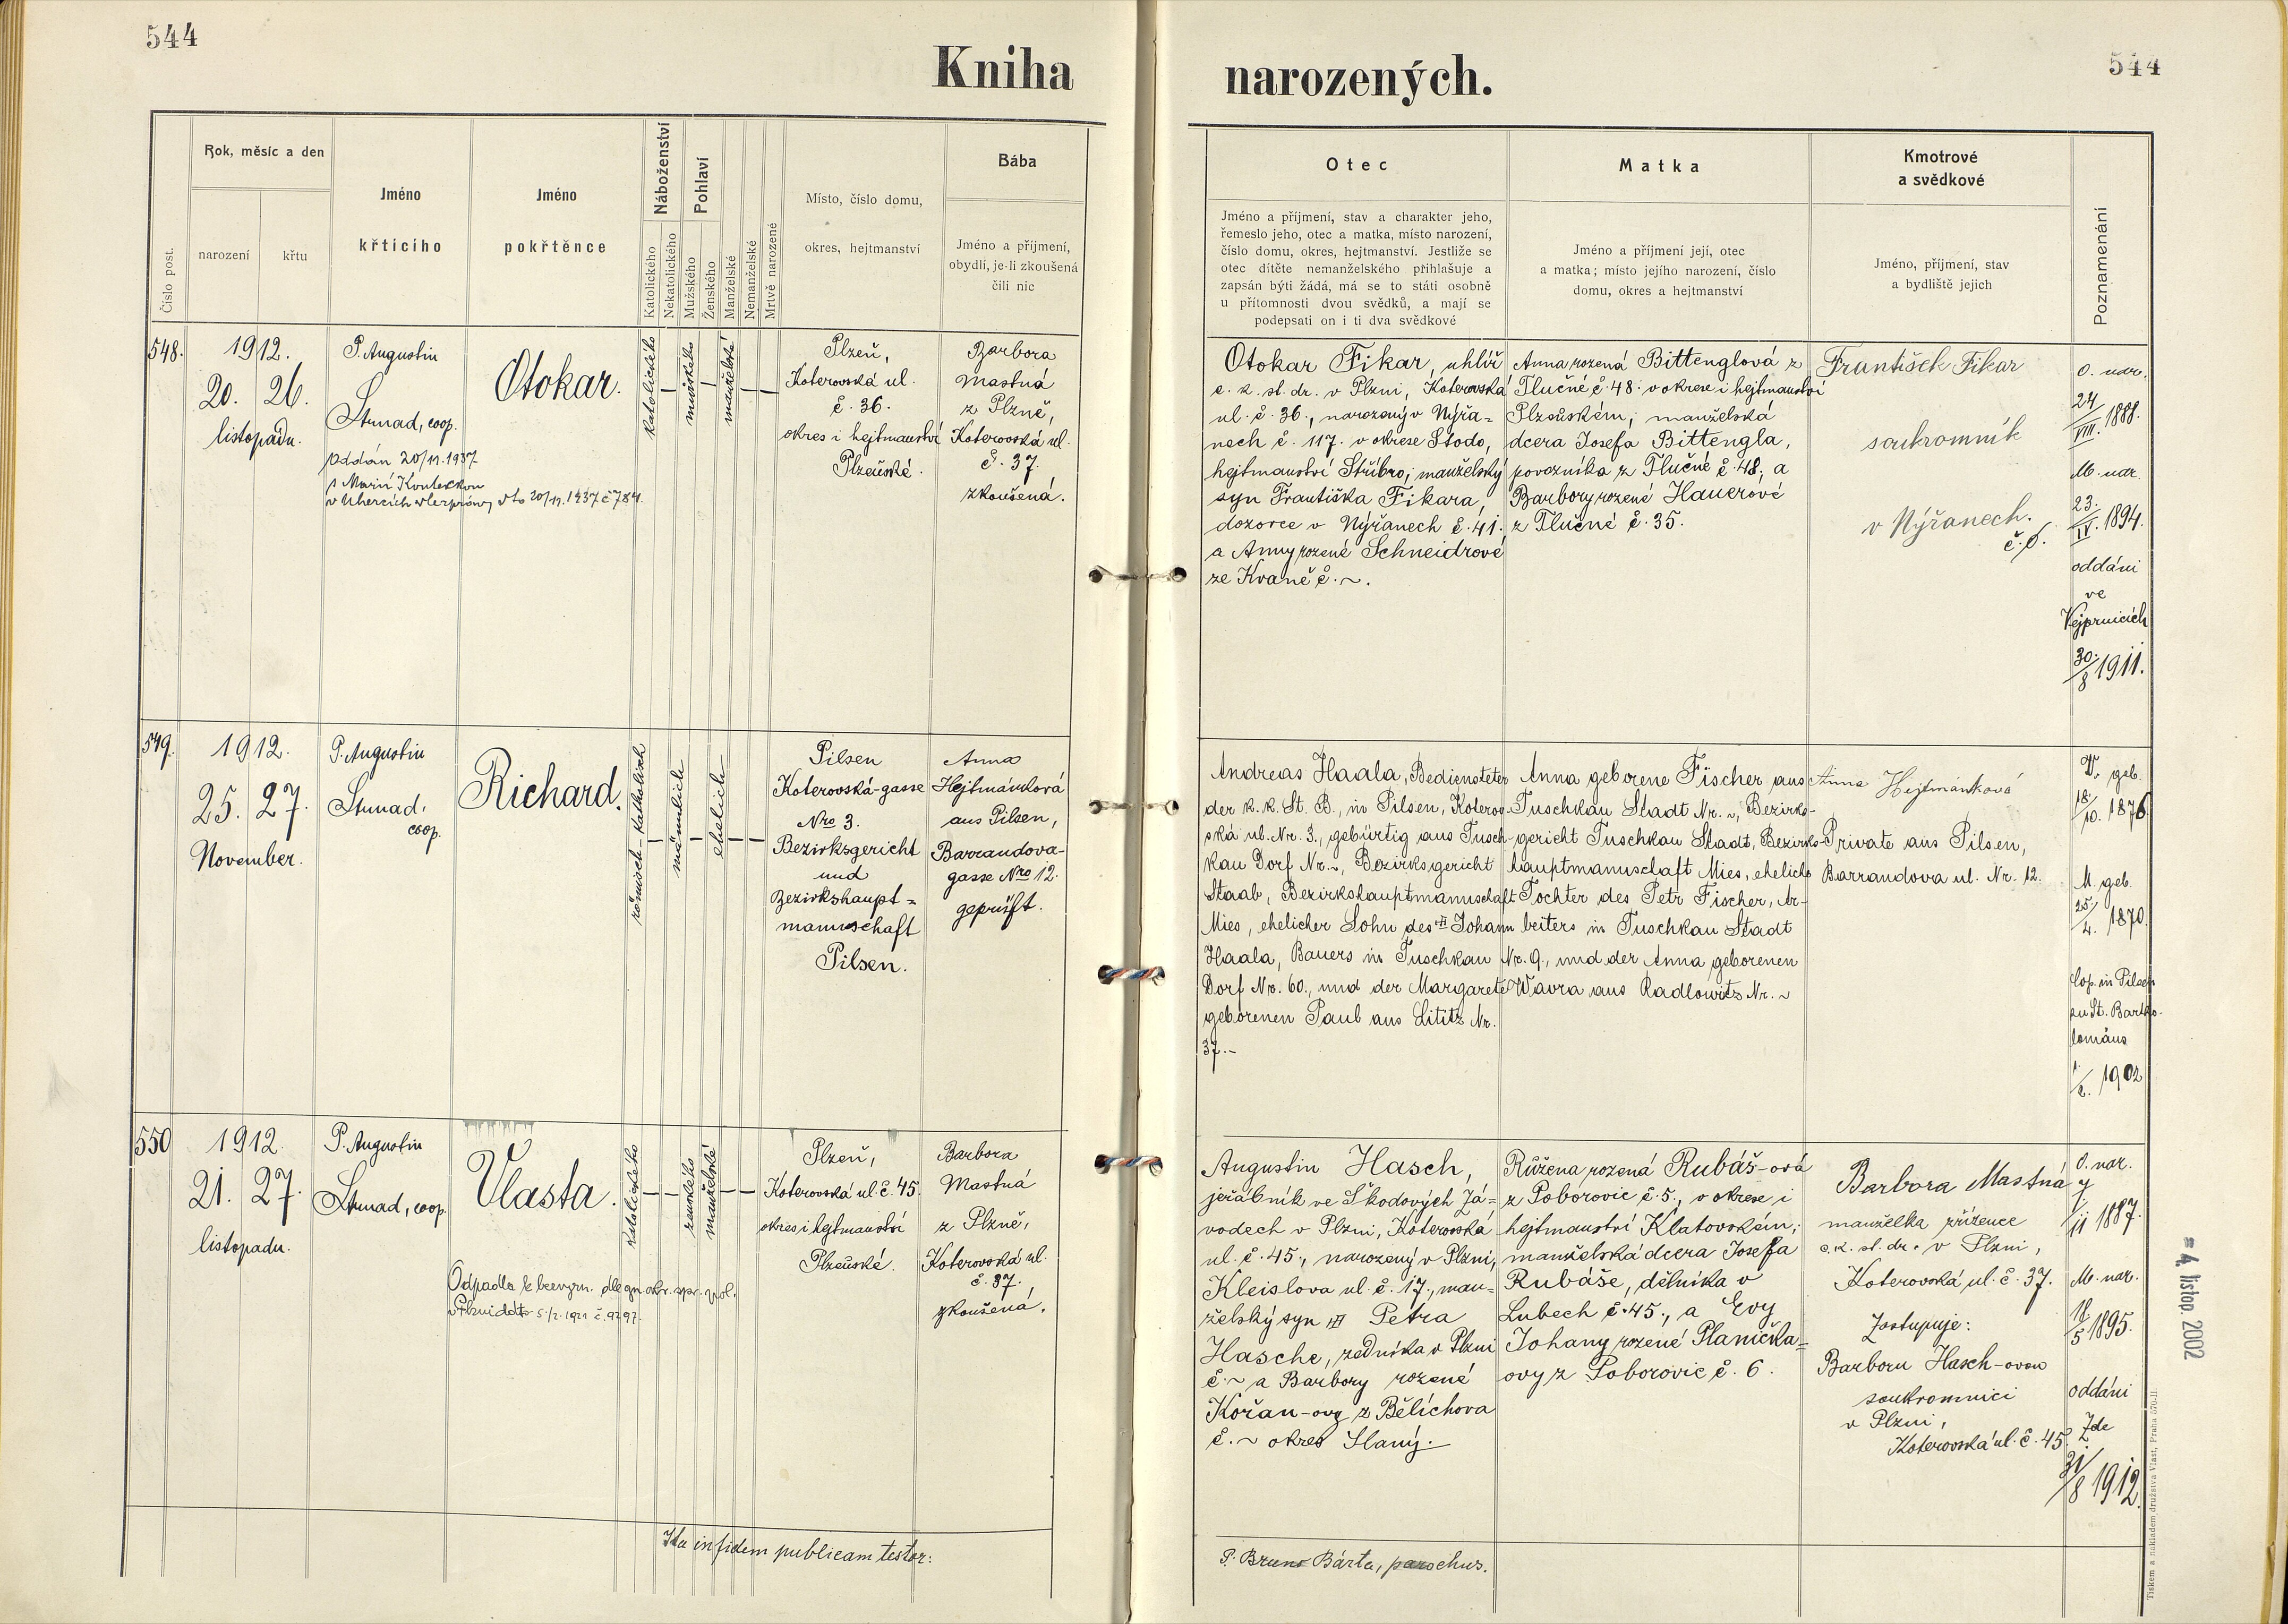 544
Kniha
narozených.
544
Číslo post.
Rok, měsíc a den
narození
křtu
Jméno
křtícího
Jméno
pokřtěnce
Náboženství
Katolického
Nekatolického
Pohlaví
Mužského
Ženského
Manželské
Nemanželské
Mrtvě narozené
Místo, číslo domu,
okres, hejtmanství
Bába
Jméno a příjmení,
obydlí, je-li zkoušená
čili nic
Otec
Jméno a příjmení, stav a charakter jeho,
řemeslo jeho, otec a matka, místo narození,
číslo domu, okres, hejtmanství. Jestliže se
otec dítěte nemanželského přihlašuje a
zapsán býti žádá, má se to státi osobně
u přítomnosti dvou svědků, a mají se
podepsati on i ti dva svědkové
Matka
Jméno a příjmení její, otec
a matka; místo jejího narození, číslo
domu, okres a hejtmanství
Kmotrové
a svědkové
Jméno, příjmení, stav
a bydliště jejich
Poznamenání
548.
1912.
20. 26.
listopadu.
P. Augustin
Strnad, coop.
oddán 20/11.1937
s Marií
v Uhercích 20/11.1937 č 784.
Otokar.
katolického
mužského
manželské
Plzeň,
Koterovská ul.
č. 36.
okres i hejtmanství
Plzeňské.
Barbora
Mastná
z Plzně,
Koterovská ul.
č. 37.
zkoušená.
Otokar Fikar, uhlíř
c. k. st. dr. v Plzni, Koterovská
ul. č. 36., narozený v Nýřa=
nech č. 117. v okrese Stodo,
hejtmanství Stříbro; manželský
syn Františka Fikara,
dozorce v Nýřanech č. 41.
a Anny rozené Schneidrové
ze Kvaně č. ~.
Anna rozená Bittenglová z
Tlučné č. 48. v okrese i hejtmanství
Plzeňském; manželská
dcera Josefa Bittengla,
povozníka z Tlučné č. 48, a
Barbory rozené Hauerové
z Tlučné č. 35.
František Fikar
soukromník
v Nýřanech.
č. 0.
O. nar.
24/VIII. 1888.
M. nar.
23./IV. 1894.
oddáni
ve
Vejprnicích
30./8 1911.
549.
1912.
25. 27.
November.
P. Augustin
Strnad,
coop.
Richard.
römisch-katholisch
männlich
ehelich
Pilsen
Koterovská-gasse
Nro 3.
Bezirksgericht
und
Bezirkshaupt=
mannschaft
Pilsen.
Anna
Hejtmánková
aus Pilsen,
Barrandova-
gasse Nro 12.
geprüft.
Andreas Haala, Bediensteter
der k. k. St. B., in Pilsen, Koterov-
ská ul. Nr. 3., gebürtig aus Tusch-
kau Dorf Nr. ~, Bezirksgericht
Staab, Bezirkshauptmannschaft
Mies, ehelicher Sohn des Johann
Haala, Bauers in Tuschkau
Dorf Nr. 60., und der Margarete
geborenen Paul aus Lititz Nr.
37.-
Anna geborene Fischer aus
Tuschkau Stadt Nr. ~, Bezirks-
gericht Tuschkau Stadt, Bezirks-
hauptmannschaft Mies, eheliche
Tochter des Petr Fischer, Ar-
beiters in Tuschkau Stadt
Nr. 9., und der Anna geborenen
Wavra aus Radlowitz Nr. ~
Anna Hejtmánková
Private aus Pilsen,
Barrandova ul. Nr. 12.
V. geb.
18/10. 1876
M. geb.
25./4. 1870.
Cop. in Pilsen
zu St. Bartho-
lomäus
1./2. 1902
550
1912.
21. 27.
listopadu.
P. Augustin
Strnad, coop.
Vlasta.
Odpadla k bezvyzn. dle zn. okr. spr. pol.
v Plzni ddto 5./2. 1921 č. 9297.
katolického
ženského
manželské
Plzeň,
Koterovská ul. č. 45.
okres i hejtmanství
Plzeňské.
Barbora
Mastná
z Plzně,
Koterovská ul.
č. 37.
zkoušená.
Augustin Hasch,
jeřábník ve Škodových Zá=
vodech v Plzni, Koterovská
ul. č. 45., narozený v Plzni,
Kleislova ul. č. 17., man=
želský syn Petra
Hasche, zedníka v Plzni
č. ~ a Barbory rozené
Kořan-ovy z Bělíchova
č. ~ okres Slaný.
Růžena rozená Rubáš-ová
z Poborovic č. 5., v okrese i
hejtmanství Klatovském;
manželská dcera Josefa
Rubáše, dělníka v
Lubech č. 45., a Evy
Johany rozené Planička=
ovy z Poborovic č. 6.
Barbora Mastná
manželka zřízence
c. k. st. dr. v Plzni,
Koterovská ul. č. 37.
Zastupuje:
Barboru Hasch-ovou
soukromnici
v Plzni,
Koterovská ul. č. 45.
O. nar.
1887.
M. nar.
18./5 1895.
oddáni
Zde
31/8 1912.
Ita in fidem publicam testor:
P. Bruno Bárta, parochus.
= 4. listop. 2002
Tiskem a nákladem družstva Vlast, Praha 570-II.